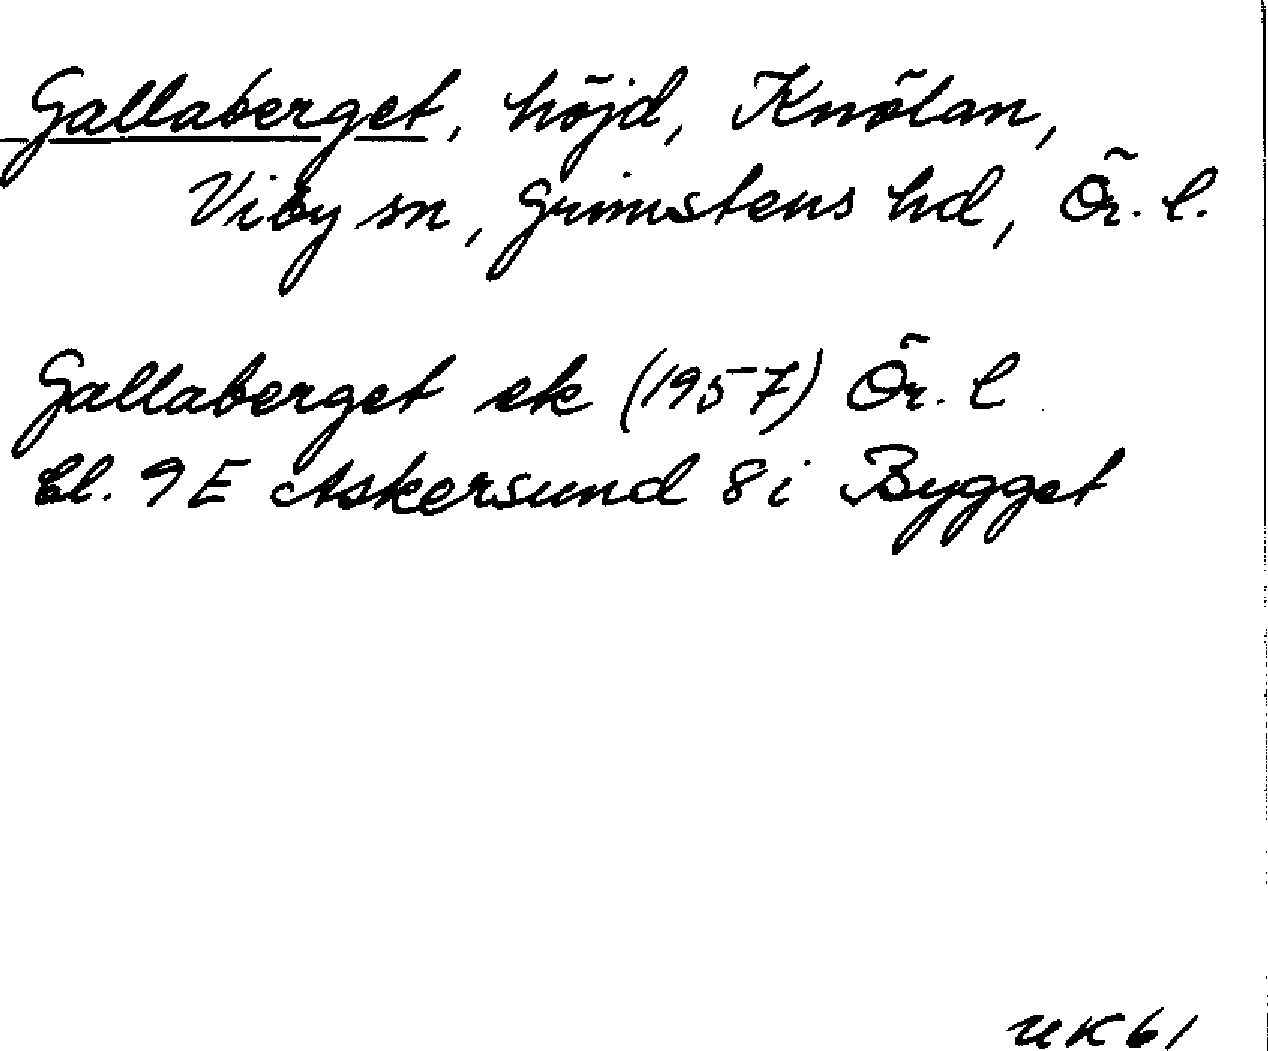 Gallaberget, höjd, Knölan,
Viby sn, Grimstens hd, Ör. l.
Gallaberget ek (1957) Ör. l
bl. 9E Askersund 8i Bygget
UK 61